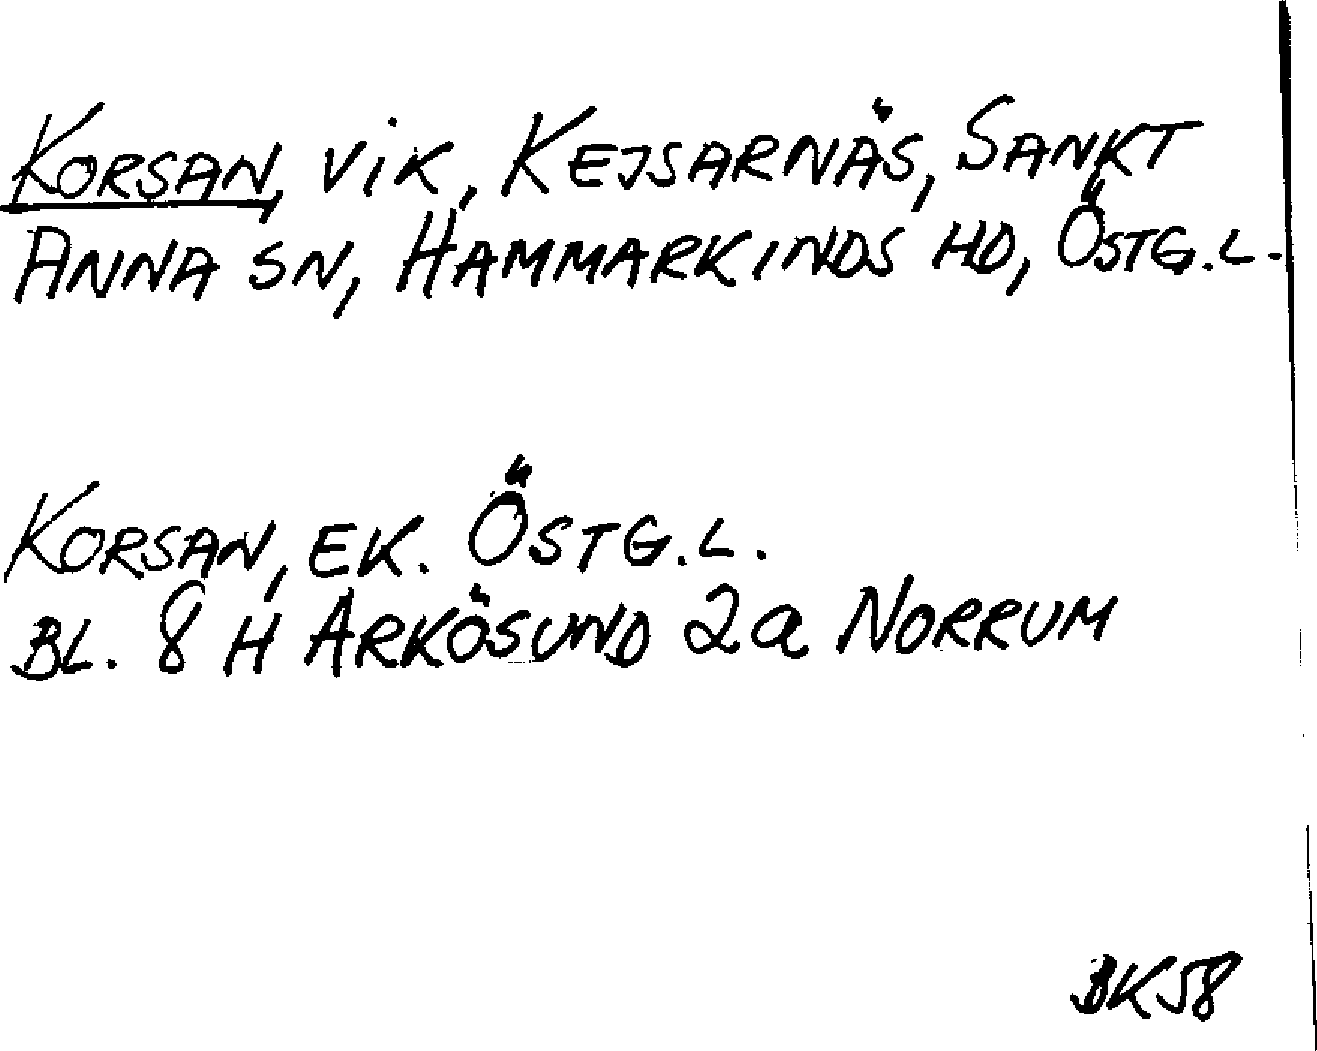 KORSAN, VIK, KEJSARNÄS, SANKT
ANNA SN, HAMMARKINDS HD, ÖSTG.L.
KORSAN, EK. ÖSTG.L.
BL. 8 H ARKÖSUND 2a NORRUM
BK58